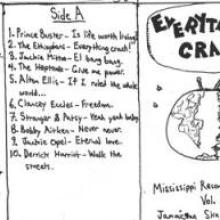 Side A
1. Prince Buster - Is life worth living?
2. The Ethiopians - Everything crash!
3. Jackie Mittoo - El bang bang.
4. The Heptones - Give me power.
5. Alton Ellis - If I ruled the whole
world...
6. Clancey Eccles - Freedom.
7. Stranger & Patsy - Yeah yeah baby.
8. Bobby Aitken - Never never.
9. Jackie Opel - Eternal love.
10. Derrick Harriot - Walk the
streets.
EVERYTH
CRA
Mississippi Reco
Vol.
Jamaican Ska